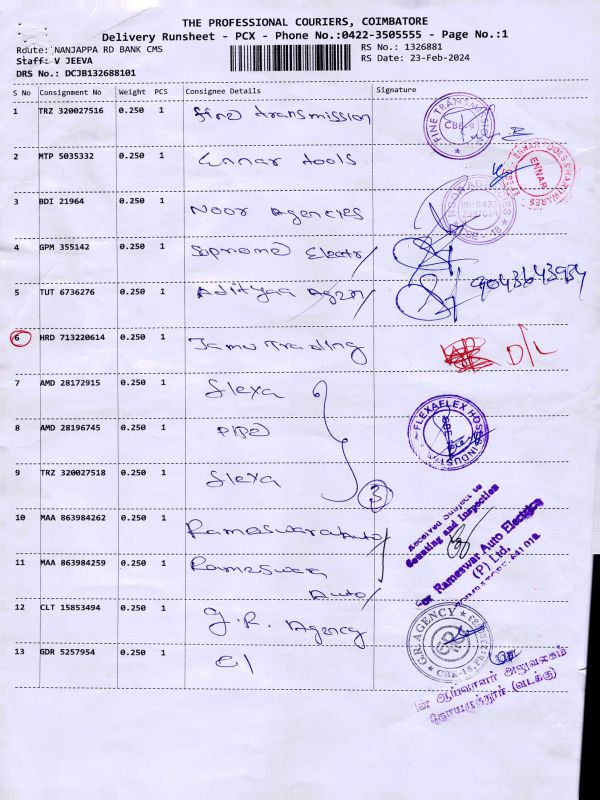 THE PROFESSIONAL COURIERS, COIMBATORE
Delivery Runsheet - PCX - Phone No.:0422-3505555 - Page No.:1
Route: NANJAPPA RD BANK CMS RS No.: 1326881
Staff: V JEEVA RS Date: 23-Feb-2024
DRS No.: DCJB132688101
S No Consignment No Weight PCS Consignee Details Signature
1 TRZ 320027516 0.250 1 fine transmission
2 MTP 5035332 0.250 1 Ennar tools
ENNAR
3 BDI 21964 0.250 1 Noor Agencies
4 GPM 355142 0.250 1 Supreme Electr/
5 TUT 6736276 0.250 1 Adityaa Agen/ 9043643934
6 HRD 713220614 0.250 1 Jamu Trading D/L
7 AMD 28172915 0.250 1 flexa
8 AMD 28196745 0.250 1 PIPe FLEXAFLEX HOSE INDUSTR
9 TRZ 320027518 0.250 1 flexa
3
Received Subject to
Counting and Inspection
10 MAA 863984262 0.250 1 Rameswara Auto/
For Rameswar Auto Electrics
(P) Ltd.
11 MAA 863984259 0.250 1 Rameswar
Auto/
12 CLT 15853494 0.250 1 G.R. Agency G.R.AGENCY
13 GDR 5257954 0.250 1 EI
ஆய்வாளர் அலுவலகம்
கோயமுத்தூர் (வடக்கு)